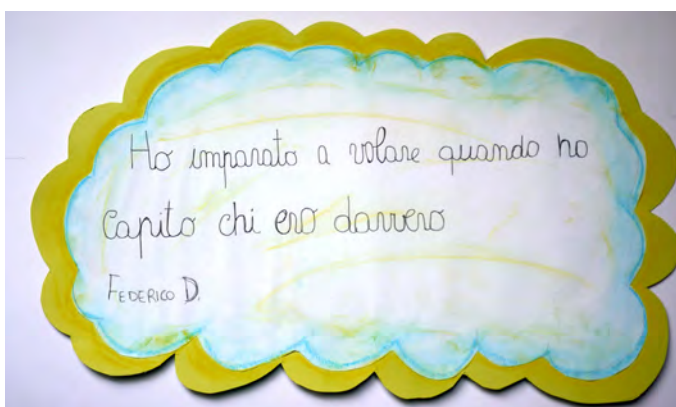 Ho imparato a volare quando ho
capito chi ero davvero
FEDERICO D.